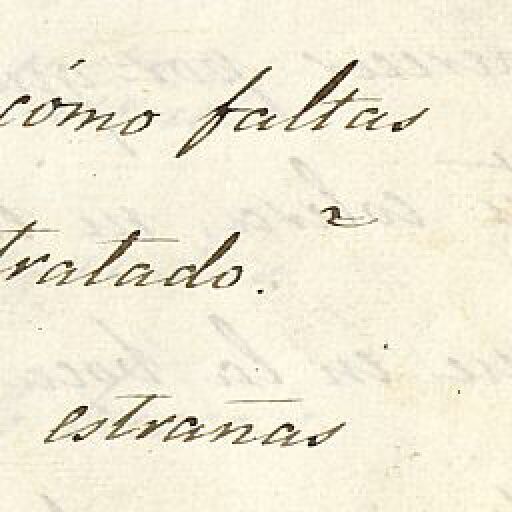 cómo faltas
tratado.
estrañas